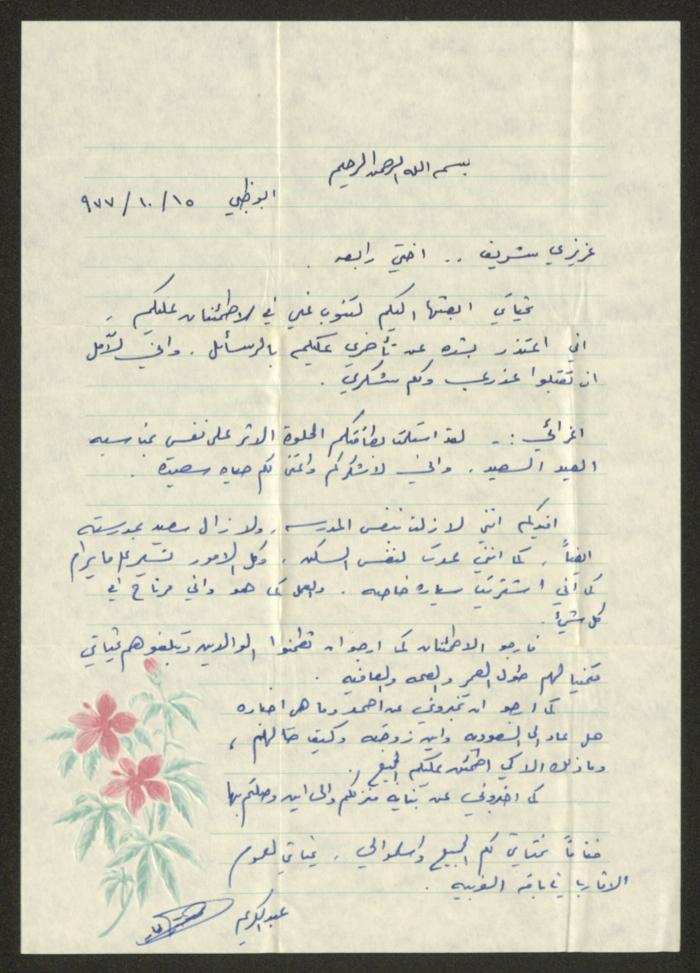 بسم الله الرحمن الرحيم
ابوظبي ١٥/١٠/٩٧٧
عزيزي شريف .. اختي رابعه .
تحياتي ابعثها اليكم لتنوب عني في الاطمئنان عليكم .
اني اعتذر بشده عن تأخري عليكم بالرسائل . واني لآمل
ان تقبلوا عذري ولكم شكري .
اعزائي :- لقد استلمت بطاقتكم الحلوة الاثر على نفسي بمناسبه
العيد السعيد . واني لاشكركم واتمنى لكم حياه سعيدة .
افيدكم انني لا زلت بنفس المدرسه ، ولا زال سعيد بمدرسته
ايضاً ، كما انني عدت لنفس السكن . وكل الامور تسير على ما يرام
كما أني اشتريت سياره خاصه . والعمل كما هو واني مرتاح في
كل شيئ .
فارجو الاطمئنان كما ارجو ان تطمئنوا الوالدين وتبلغوهم تحياتي
متمنيا لهم طول العمر والصحه والعافيه .
كما ارجو ان تخبروني عن احمد وما هي اخباره
هل عاد الى السعوديه واين زوجته وكيف حالهم ،
وما ذلك الا كي اطمئن عليكم الجميع .
كما اخبروني عن بناية منزلكم والى اين وصلتم بها
ختاماً تحياتي لكم الجميع واسلموا لي . تحياتي لعموم
الاقارب في باقه الغربيه .
عبدالكريم